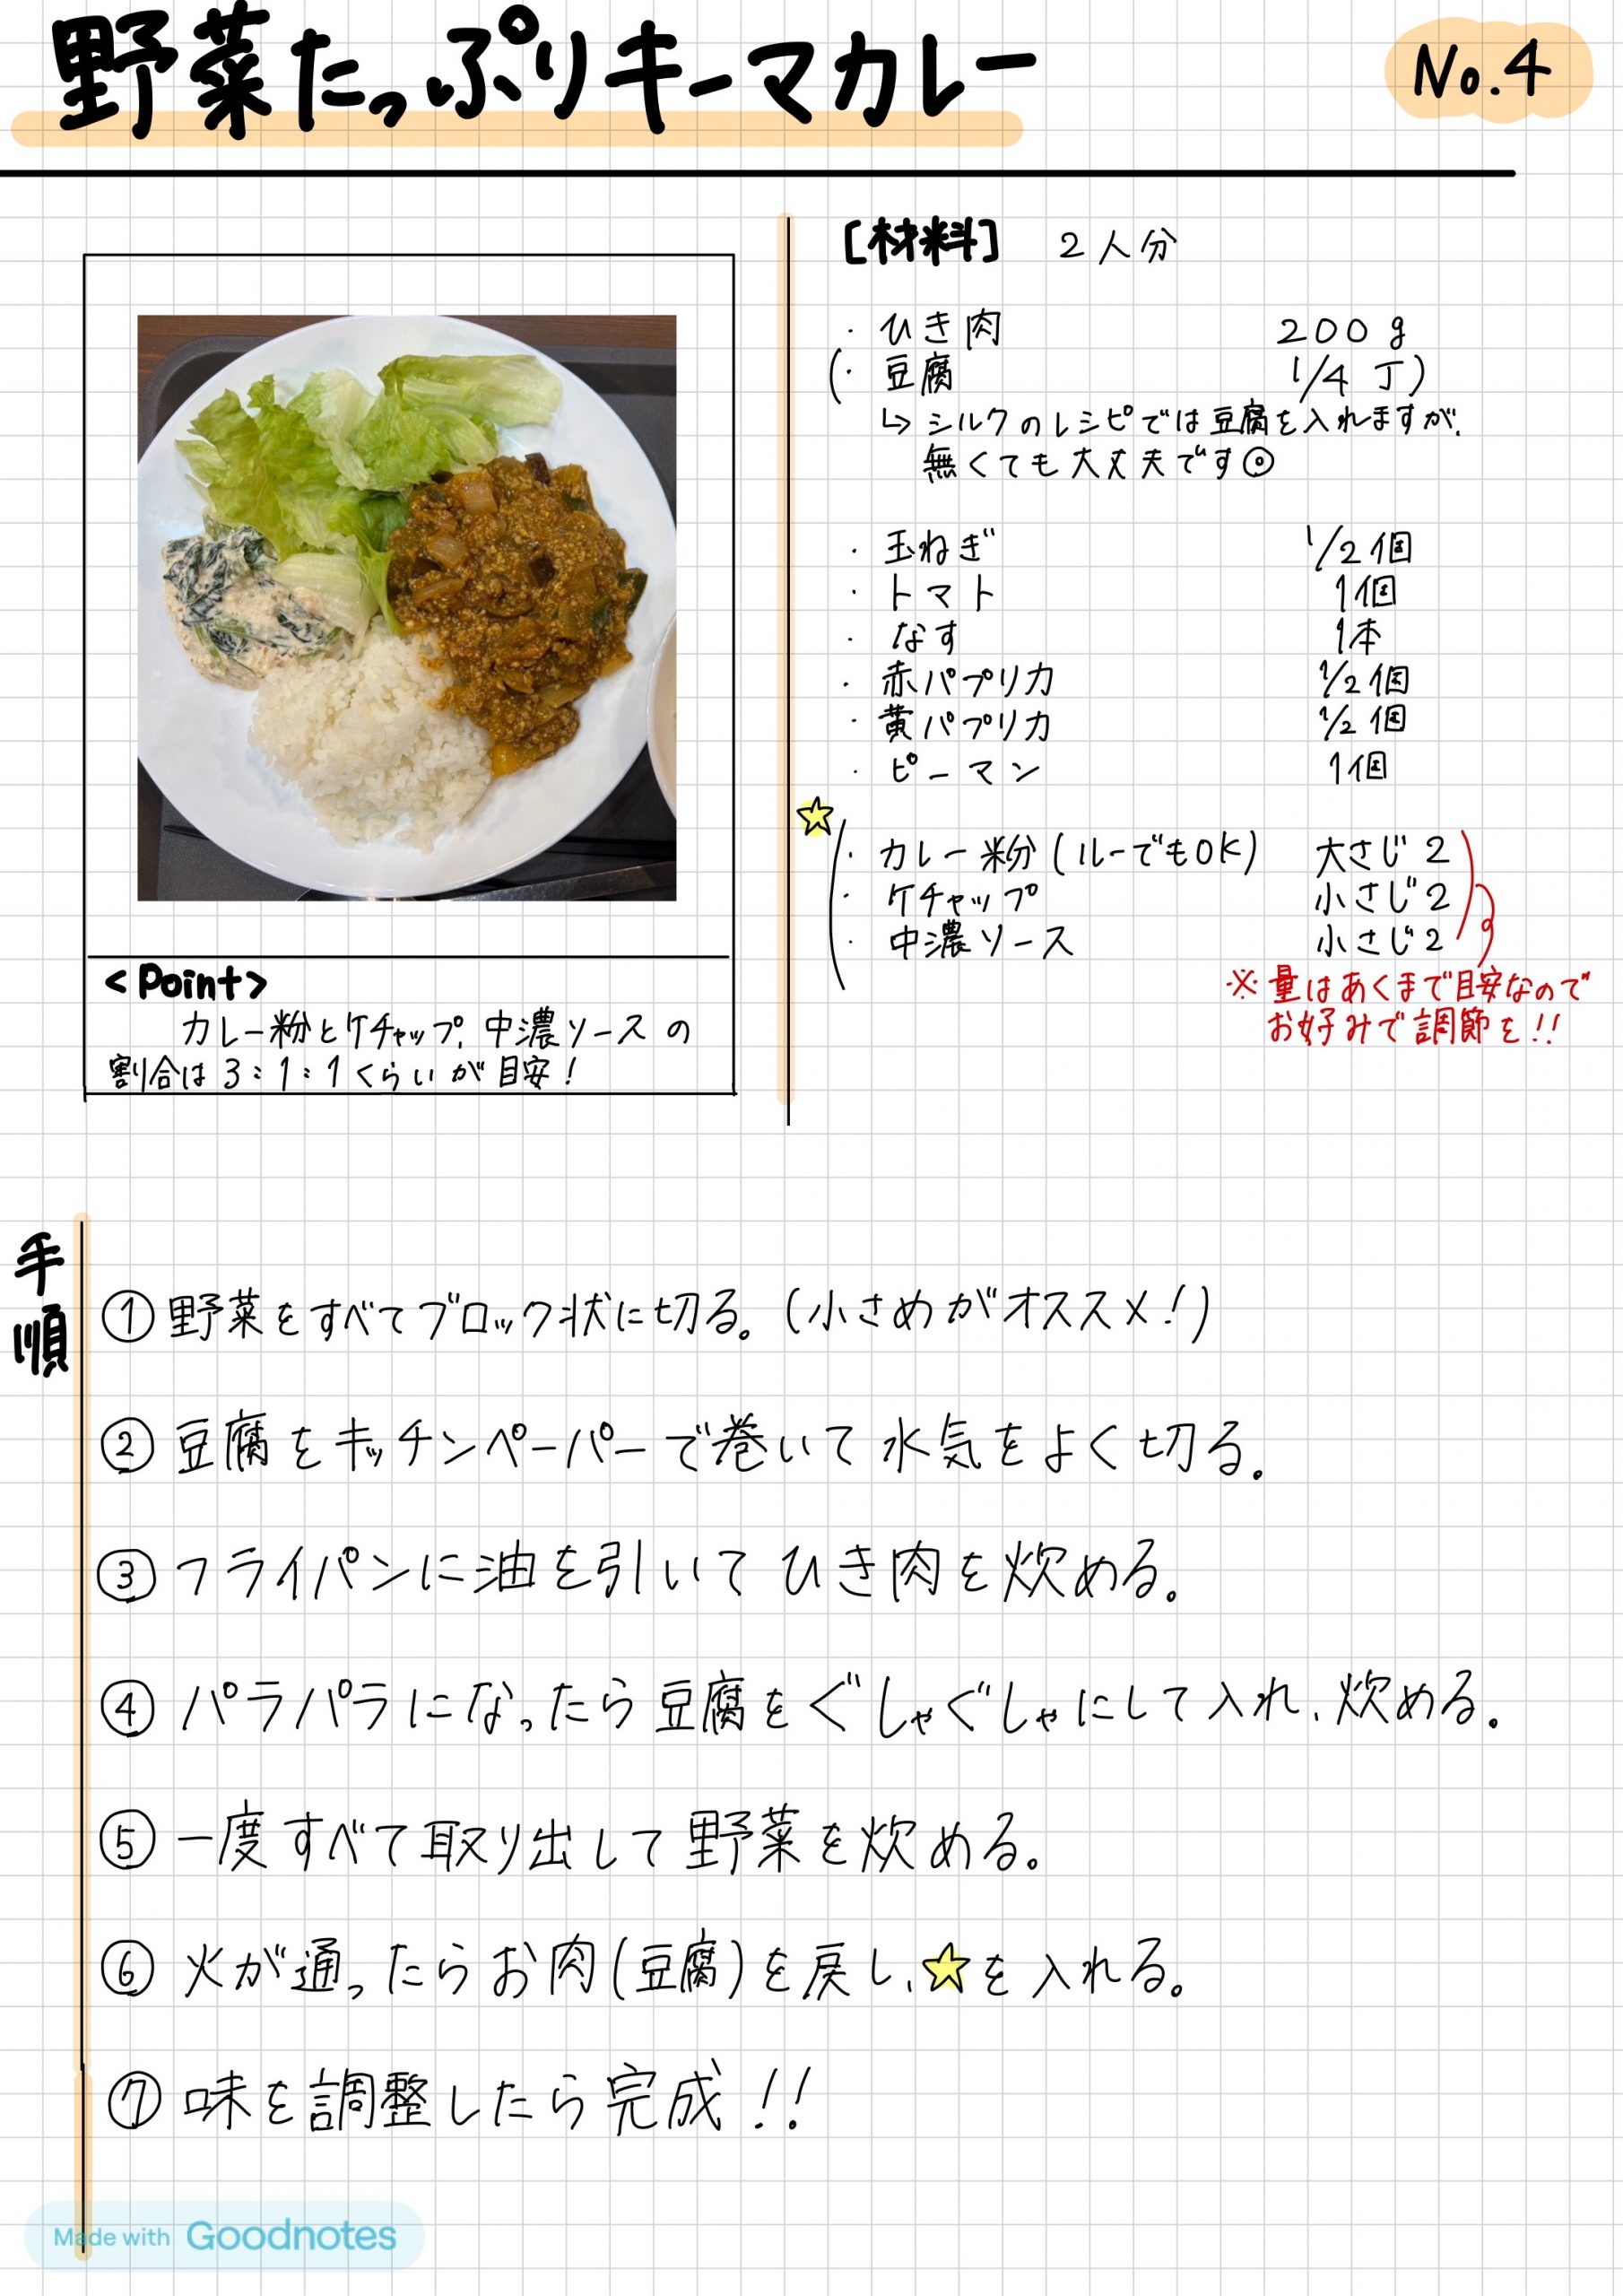 野菜たっぷりキーマカレー
No.4
[材料] 2人分
・ひき肉 200g
(・豆腐 1/4丁)
↳ シルクのレシピでは豆腐を入れますが、
無くても大丈夫です◎
・玉ねぎ 1/2個
・トマト 1個
・なす 1本
・赤パプリカ 1/2個
・黄パプリカ 1/2個
・ピーマン 1個
☆
・カレー粉(ルーでもOK) 大さじ2
・ケチャップ 小さじ2
・中濃ソース 小さじ2
※量はあくまで目安なので
お好みで調節を!!
<Point>
カレー粉とケチャップ、中濃ソースの
割合は3:1:1くらいが目安!
手順
①野菜をすべてブロック状に切る。(小さめがオススメ!)
②豆腐をキッチンペーパーで巻いて水気をよく切る。
③フライパンに油を引いてひき肉を炊める。
④パラパラになったら豆腐をぐしゃぐしゃにして入れ、炊める。
⑤一度すべて取り出して野菜を炊める。
⑥火が通ったらお肉(豆腐)を戻し、☆を入れる。
⑦味を調整したら完成!!
Made with Goodnotes